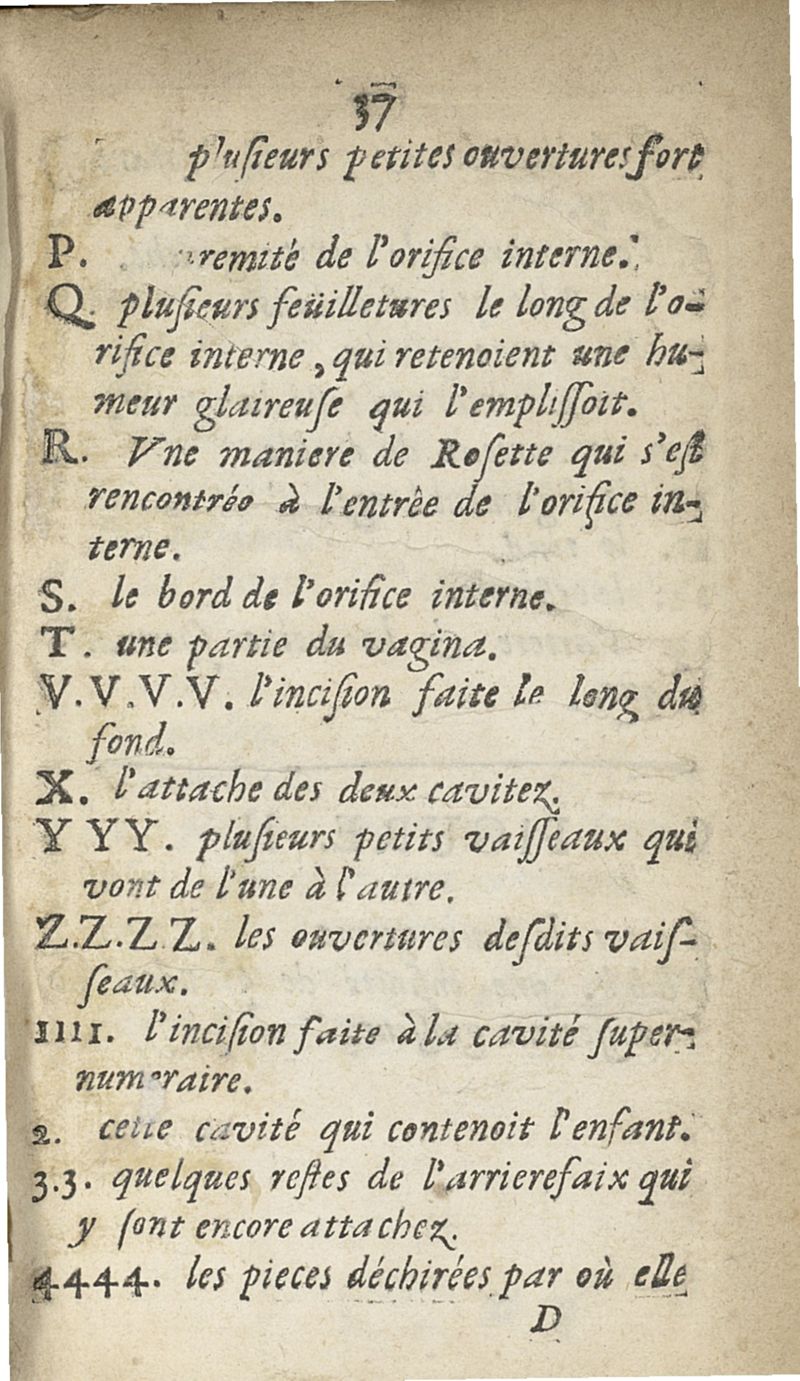 37
pluſieurs petites ouvertures fort
apparentes.
P. remité de l'orifice interne.
Q. pluſieurs feüilletures le long de l'o-
rifice interne, qui retenoient une hu-
meur glaireuſe qui l'empliſſoit.
R. Vne maniere de Roſette qui s'eſt
rencontrée à l'entrèe de l'orifice in-
terne.
S. le bord de l'orifice interne.
T. une partie du vagina.
V.V.V.V. l'inciſion faite le long du
fond.
X. l'attache des deux cavitez.
Y Y Y. pluſieurs petits vaiſſeaux qui
vont de l'une à l'autre.
Z.Z.Z Z. les ouvertures deſdits vaiſ-
ſeaux.
1111. l'inciſion faite à la cavité ſuper-
numeraire.
2. cette cavité qui contenoit l'enfant.
3.3. quelques reſtes de l'arrierefaix qui
y ſont encore attachez.
4444. les pieces déchirées par où elle
D